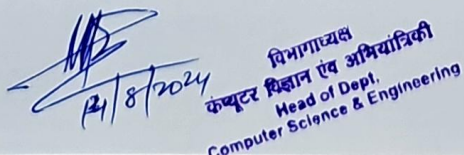 विभागाध्यक्ष
कंप्यूटर विज्ञान एंव अभियांत्रिकी
Head of Dept.
Computer Science & Engineering
/8/2024